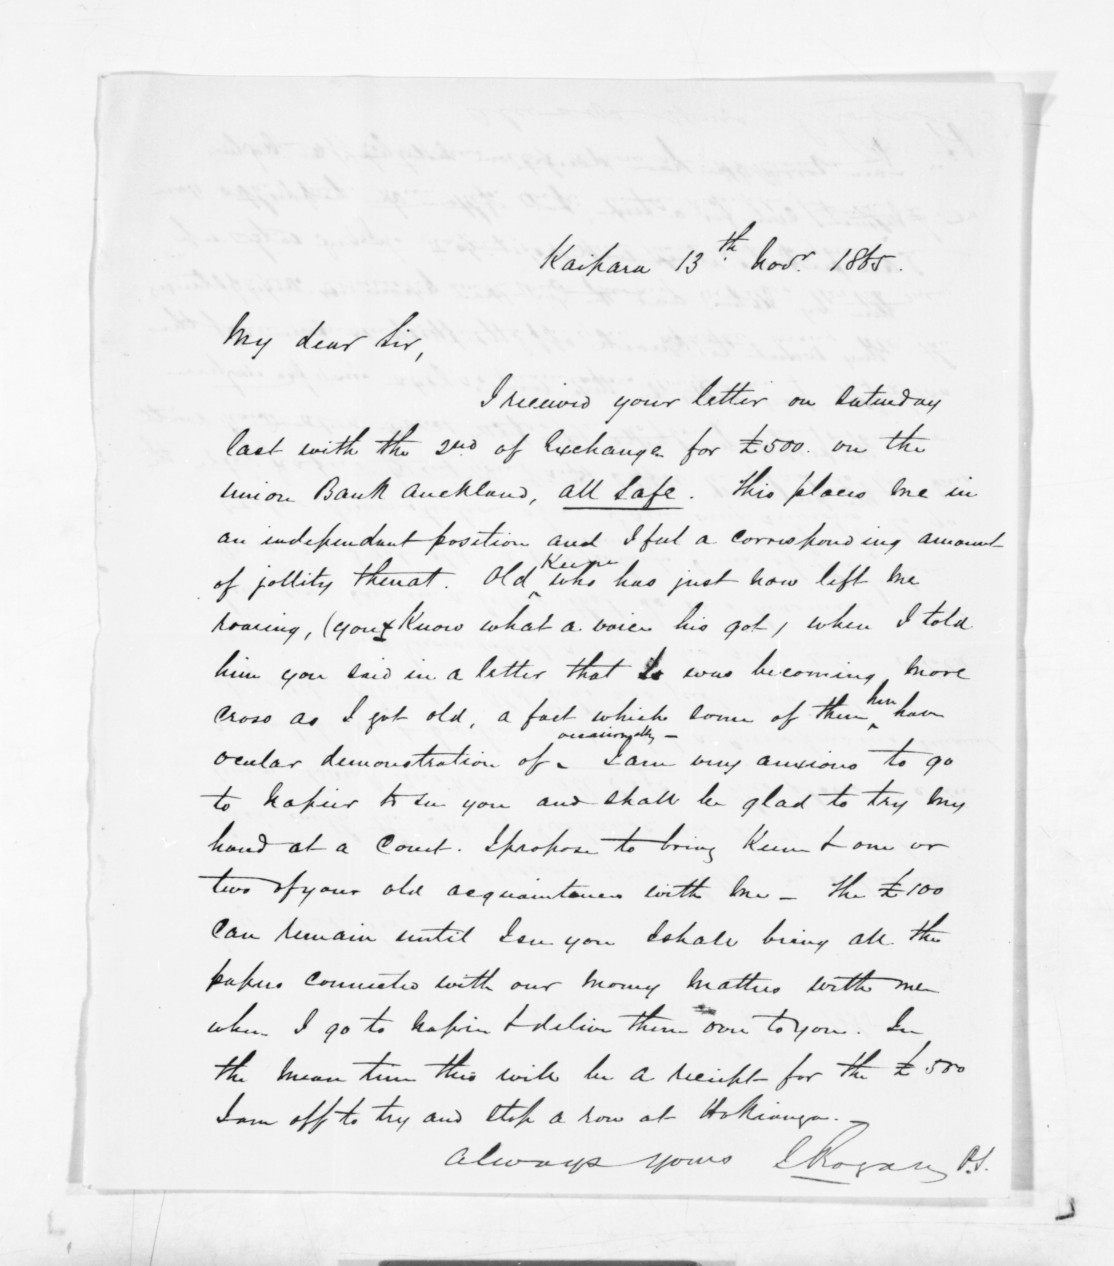 Kaipara 13th Novr. 1865.
My dear Sir,
I received your letter on Saturday
last with the 2nd of Exchange for £500. on the
Union Bank Auckland, all safe. This places me in
an independent position and I feel a corresponding amount
of jollity thereat. Old Keene who has just now left me
roaring, (you know what a voice his got) when I told
him you said in a letter that I was becoming more
cross as I got old, a fact which some of them here have
ocular demonstration of occasionally - I am very anxious to go
to Napier to see you and shall be glad to try my
hand at a Court. I propose to bring Keene & one or
two of your old acquaintances with me - The £100
can remain until I see you I shall bring all the
papers connected with our money matters with me
when I go to Napier & deliver them over to you. In
the mean time this will be a receipt for the £500
I am off to try and stop a row at Hokianga. -
Always yours J Rogan P.S.